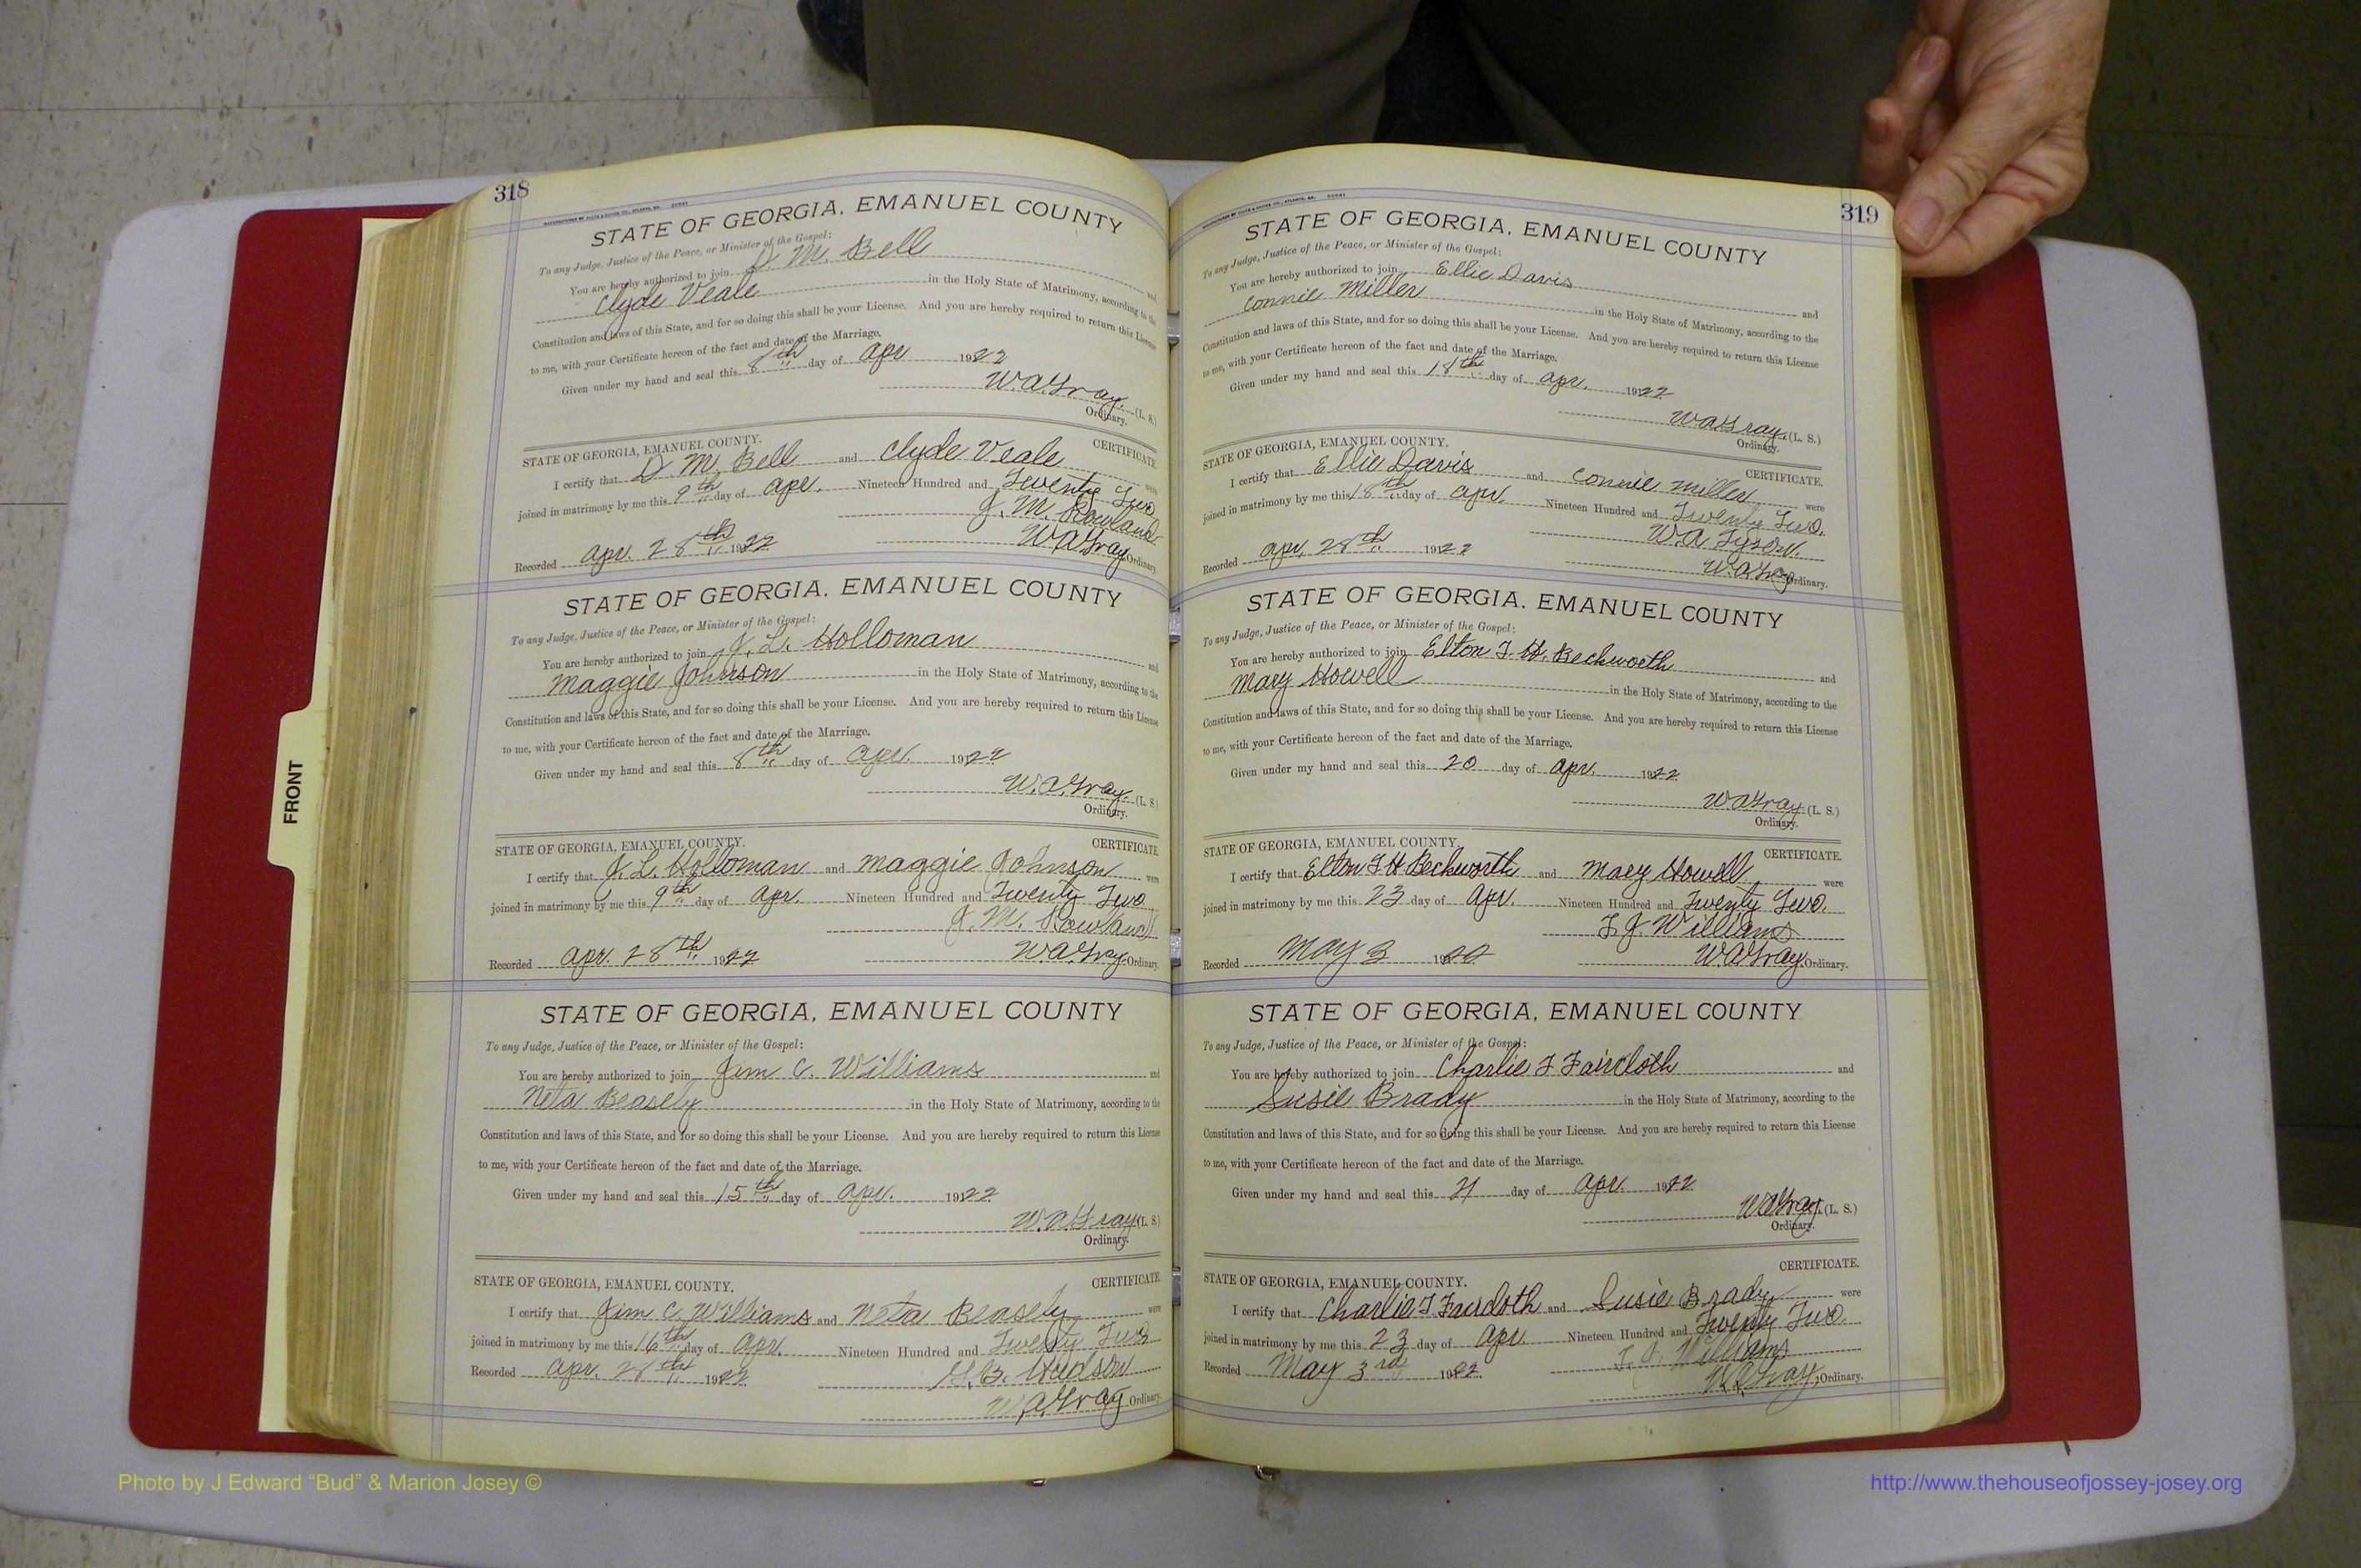 318
STATE OF GEORGIA, EMANUEL COUNTY
To any Judge, Justice of the Peace, or Minister of the Gospel:
You are hereby authorized to join D. M. Bell and
Clyde Veale in the Holy State of Matrimony, according to the
Constitution and laws of this State, and for so doing this shall be your License. And you are hereby required to return this License
to me, with your Certificate hereon of the fact and date of the Marriage.
Given under my hand and seal this 8th day of Apr 1922
W.A. Gray. (L. S.)
Ordinary.
STATE OF GEORGIA, EMANUEL COUNTY. CERTIFICATE.
I certify that D. M. Bell and Clyde Veale were
joined in matrimony by me this 9th day of Apr. Nineteen Hundred and Twenty Two
J. M. Rowland
Recorded Apr. 28th 1922 W.A. Gray Ordinary.
STATE OF GEORGIA, EMANUEL COUNTY
To any Judge, Justice of the Peace, or Minister of the Gospel:
You are hereby authorized to join J. L. Holloman and
Maggie Johnson in the Holy State of Matrimony, according to the
Constitution and laws of this State, and for so doing this shall be your License. And you are hereby required to return this License
to me, with your Certificate hereon of the fact and date of the Marriage.
Given under my hand and seal this 8th day of Apr. 1922
W.A. Gray. (L. S.)
Ordinary.
STATE OF GEORGIA, EMANUEL COUNTY. CERTIFICATE.
I certify that J. L. Holloman and Maggie Johnson were
joined in matrimony by me this 9th day of Apr. Nineteen Hundred and Twenty Two
J. M. Rowland
Recorded Apr. 28th 1922 W.A. Gray Ordinary.
STATE OF GEORGIA, EMANUEL COUNTY
To any Judge, Justice of the Peace, or Minister of the Gospel:
You are hereby authorized to join Jim C. Williams and
Neta Beasely in the Holy State of Matrimony, according to the
Constitution and laws of this State, and for so doing this shall be your License. And you are hereby required to return this License
to me, with your Certificate hereon of the fact and date of the Marriage.
Given under my hand and seal this 15th day of Apr. 1922
W.A. Gray (L. S.)
Ordinary.
STATE OF GEORGIA, EMANUEL COUNTY. CERTIFICATE.
I certify that Jim C. Williams and Neta Beasely were
joined in matrimony by me this 16th day of Apr. Nineteen Hundred and Twenty Two
Hudson
Recorded Apr. 28th 1922
W.A. Gray Ordinary.
319
STATE OF GEORGIA, EMANUEL COUNTY
To any Judge, Justice of the Peace, or Minister of the Gospel:
You are hereby authorized to join Ellie Davis and
Connie Miller in the Holy State of Matrimony, according to the
Constitution and laws of this State, and for so doing this shall be your License. And you are hereby required to return this License
to me, with your Certificate hereon of the fact and date of the Marriage.
Given under my hand and seal this 18th day of Apr. 1922
W.A. Gray. (L. S.)
Ordinary.
STATE OF GEORGIA, EMANUEL COUNTY. CERTIFICATE.
I certify that Ellie Davis and Connie Miller were
joined in matrimony by me this 18th day of Apr. Nineteen Hundred and Twenty Two.
W.A. Tyson.
Recorded Apr. 28th 1922 W.A. Gray Ordinary.
STATE OF GEORGIA, EMANUEL COUNTY
To any Judge, Justice of the Peace, or Minister of the Gospel:
You are hereby authorized to join Elton T. H. Beckworth and
Mary Howell in the Holy State of Matrimony, according to the
Constitution and laws of this State, and for so doing this shall be your License. And you are hereby required to return this License
to me, with your Certificate hereon of the fact and date of the Marriage.
Given under my hand and seal this 20 day of Apr. 1922
W.A. Gray (L. S.)
Ordinary.
STATE OF GEORGIA, EMANUEL COUNTY. CERTIFICATE.
I certify that Elton T. H. Beckworth and Mary Howell were
joined in matrimony by me this 23 day of Apr. Nineteen Hundred and Twenty Two.
T. J. Williams
Recorded May 3 1922 W.A. Gray Ordinary.
STATE OF GEORGIA, EMANUEL COUNTY
To any Judge, Justice of the Peace, or Minister of the Gospel:
You are hereby authorized to join Charlie T Faircloth and
Susie Brady in the Holy State of Matrimony, according to the
Constitution and laws of this State, and for so doing this shall be your License. And you are hereby required to return this License
to me, with your Certificate hereon of the fact and date of the Marriage.
Given under my hand and seal this 21 day of Apr. 1922
W.A. Gray. (L. S.)
Ordinary.
STATE OF GEORGIA, EMANUEL COUNTY. CERTIFICATE.
I certify that Charlie T Faircloth and Susie Brady were
joined in matrimony by me this 23 day of Apr Nineteen Hundred and Twenty Two.
T. J. Williams
Recorded May 3rd 1922. W.A. Gray, Ordinary.
FRONT
Photo by J Edward “Bud” & Marion Josey ©
http://www.thehouseofjossey-josey.org